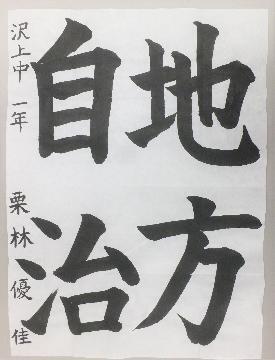 地方
自治
沢上中 一年 栗林優佳